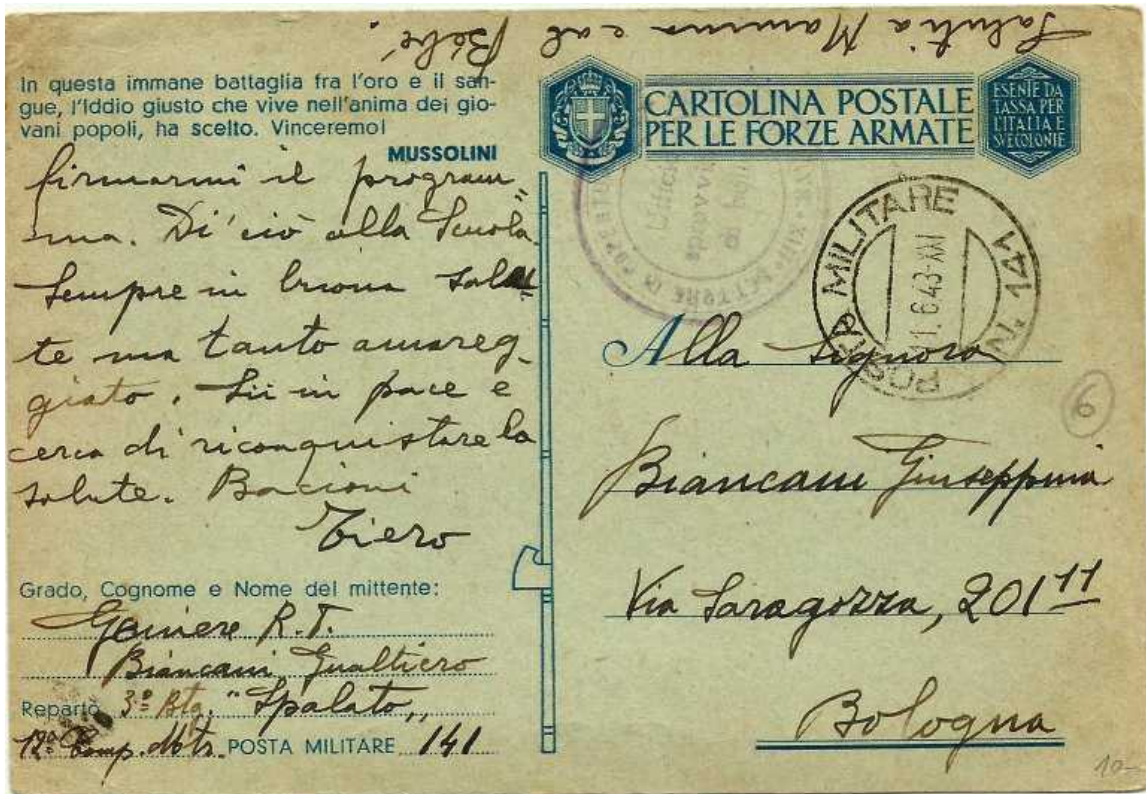 Saluti a Mamma e al
Bébé.
In questa immane battaglia fra l'oro e il san-
gue, l'Iddio giusto che vive nell'anima dei gio-
vani popoli, ha scelto. Vinceremo!
MUSSOLINI
firmarmi il program„
ma. Di' ciò alla Scuola.
Sempre in buona salu„
te ma tanto amareg„
giato. Sii in pace e
cerca di riconquistare la
salute. Bacioni
Tiero
Grado, Cognome e Nome del mittente:
Geniere R.T.
Biancani Gualtiero
Reparto 3º Btg. "Spalato„
12ª Comp. Mtr. POSTA MILITARE 141
CARTOLINA POSTALE
PER LE FORZE ARMATE
ESENTE DA
TASSA PER
L'ITALIA E
SVE COLONIE
XIII SETTORE DI COPERTURA
POSTA MILITARE N. 141
1.6.43-XXI
Alla Signora
Biancani Giuseppina
Via Saragozza, 201 11
Bologna
6
10-